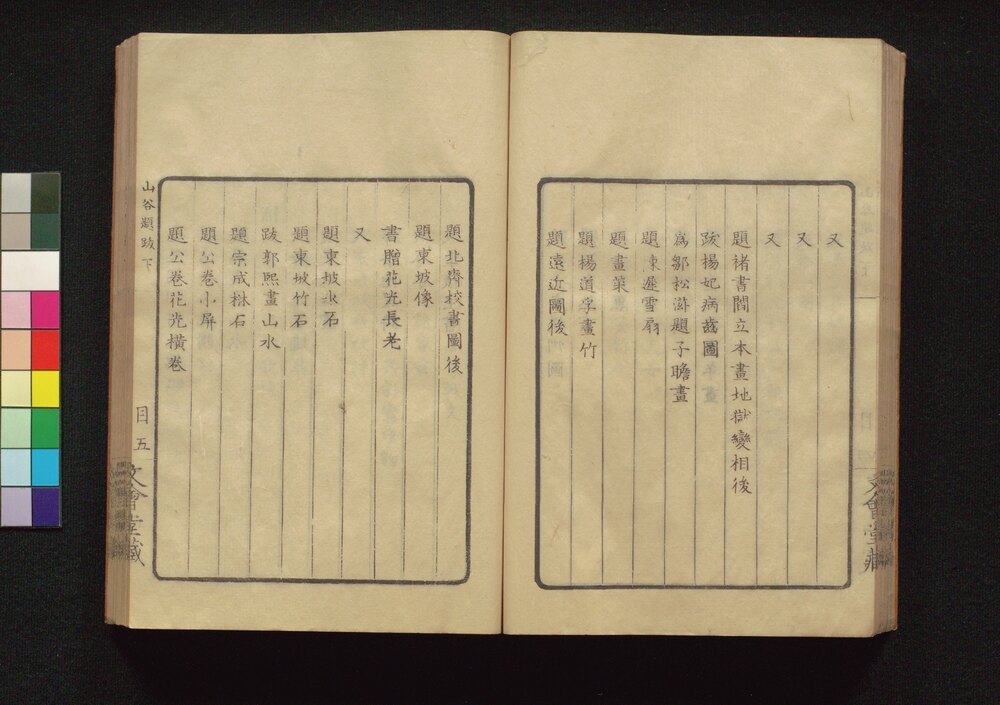 又
又
又
題褚書閻立本畫地獄變相後
跋楊妃病齒圖
為鄒松滋題子瞻畫
題陳遲雪扇
題畫菜
題楊道孚畫竹
題遠近圖後
題北齊校書圖後
題東坡像
書贈花光長老
又
題東坡水石
題東坡竹石
跋郭熙畫山水
題宗成樹石
題公卷小屏
題公卷花光橫卷
山谷題跋下
目五
文會堂藏
文會堂藏